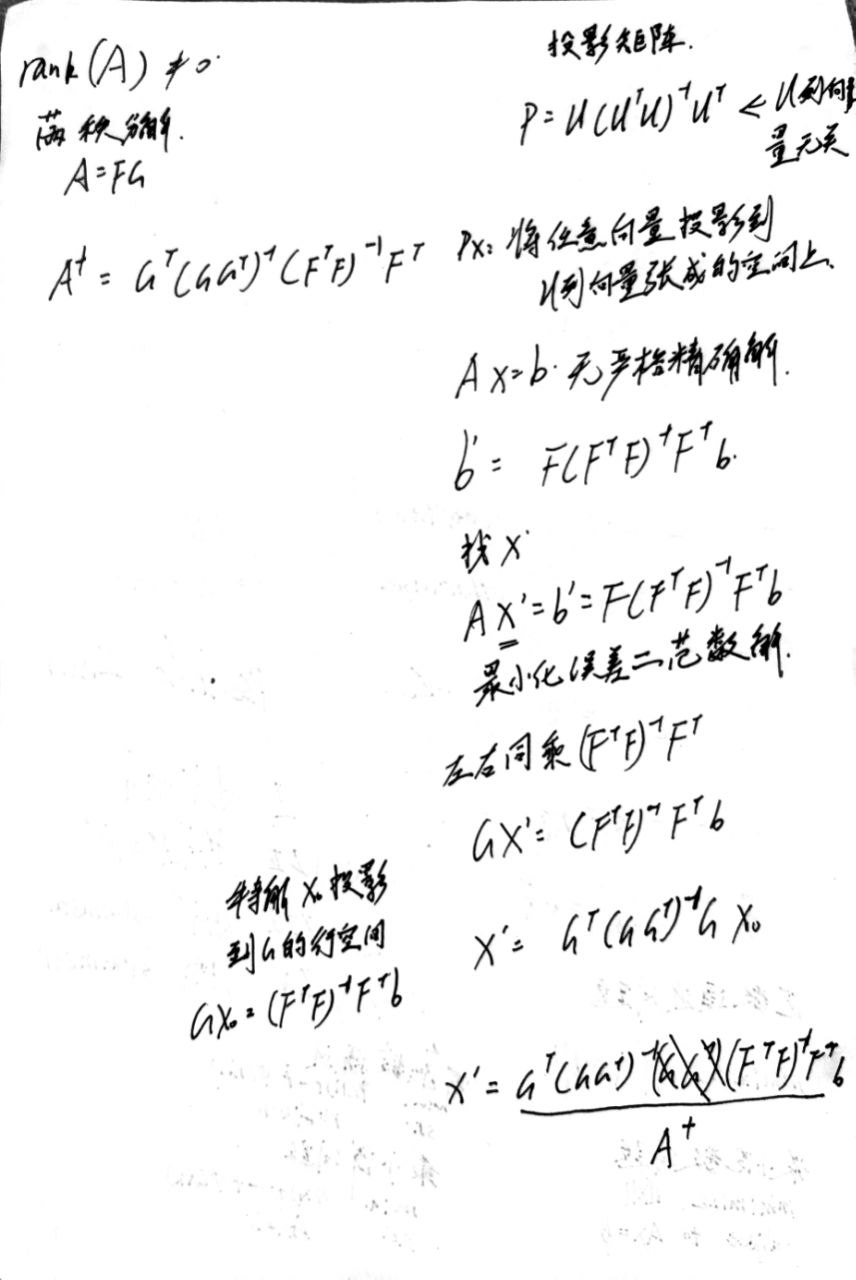 rank(A) ≠ 0
满秩分解.
A=FG
A⁺ = Gᵀ(GGᵀ)⁻¹(FᵀF)⁻¹Fᵀ
投影矩阵.
P=U(UᵀU)⁻¹Uᵀ ← U列向
量无关
Px: 将任意向量投影到
U列向量张成的空间上.
Ax=b. 无严格精确解.
b' = F(FᵀF)⁻¹Fᵀb.
找x'
Ax'=b'=F(FᵀF)⁻¹Fᵀb
最小化误差二范数解.
左右同乘(FᵀF)⁻¹Fᵀ
Gx'= (FᵀF)⁻¹Fᵀb
特解x₀投影
到G的行空间
Gx₀=(FᵀF)⁻¹Fᵀb
x'= Gᵀ(GGᵀ)⁻¹G x₀
x'= Gᵀ(GGᵀ)⁻¹(FᵀF)⁻¹Fᵀb
A⁺